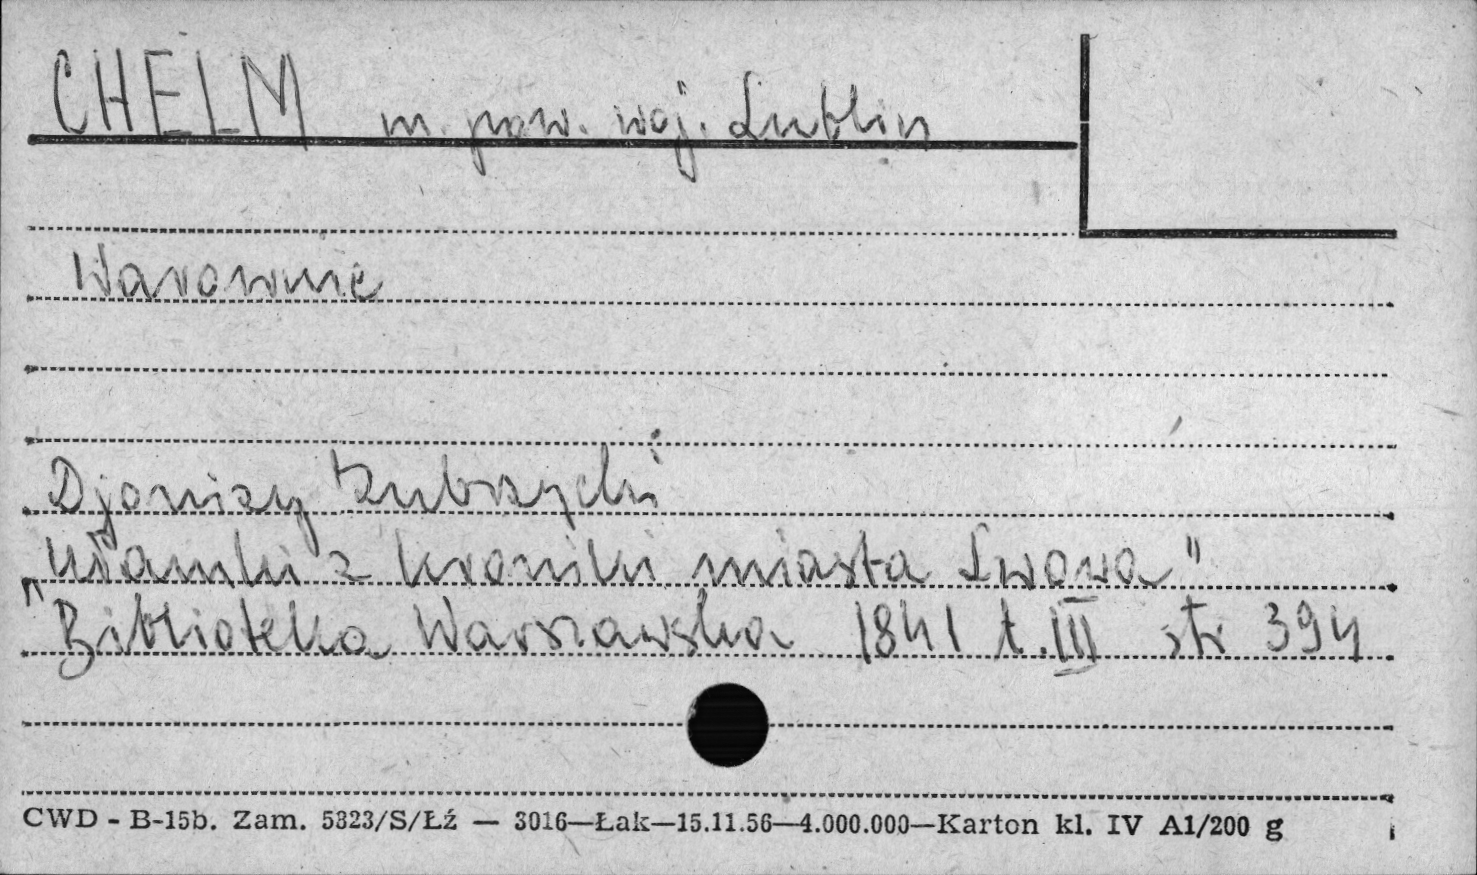 CHEŁM m. pow. woj. Lublin
Warownie
Djonizy Zubrzycki
"Ułamki z kroniki miasta Lwowa"
Biblioteka Warszawska 1841 t. III str 394
CWD - B-15b. Zam. 5323/S/Łź — 3016—Łak—15.11.56—4.000.000—Karton kl. IV A1/200 g